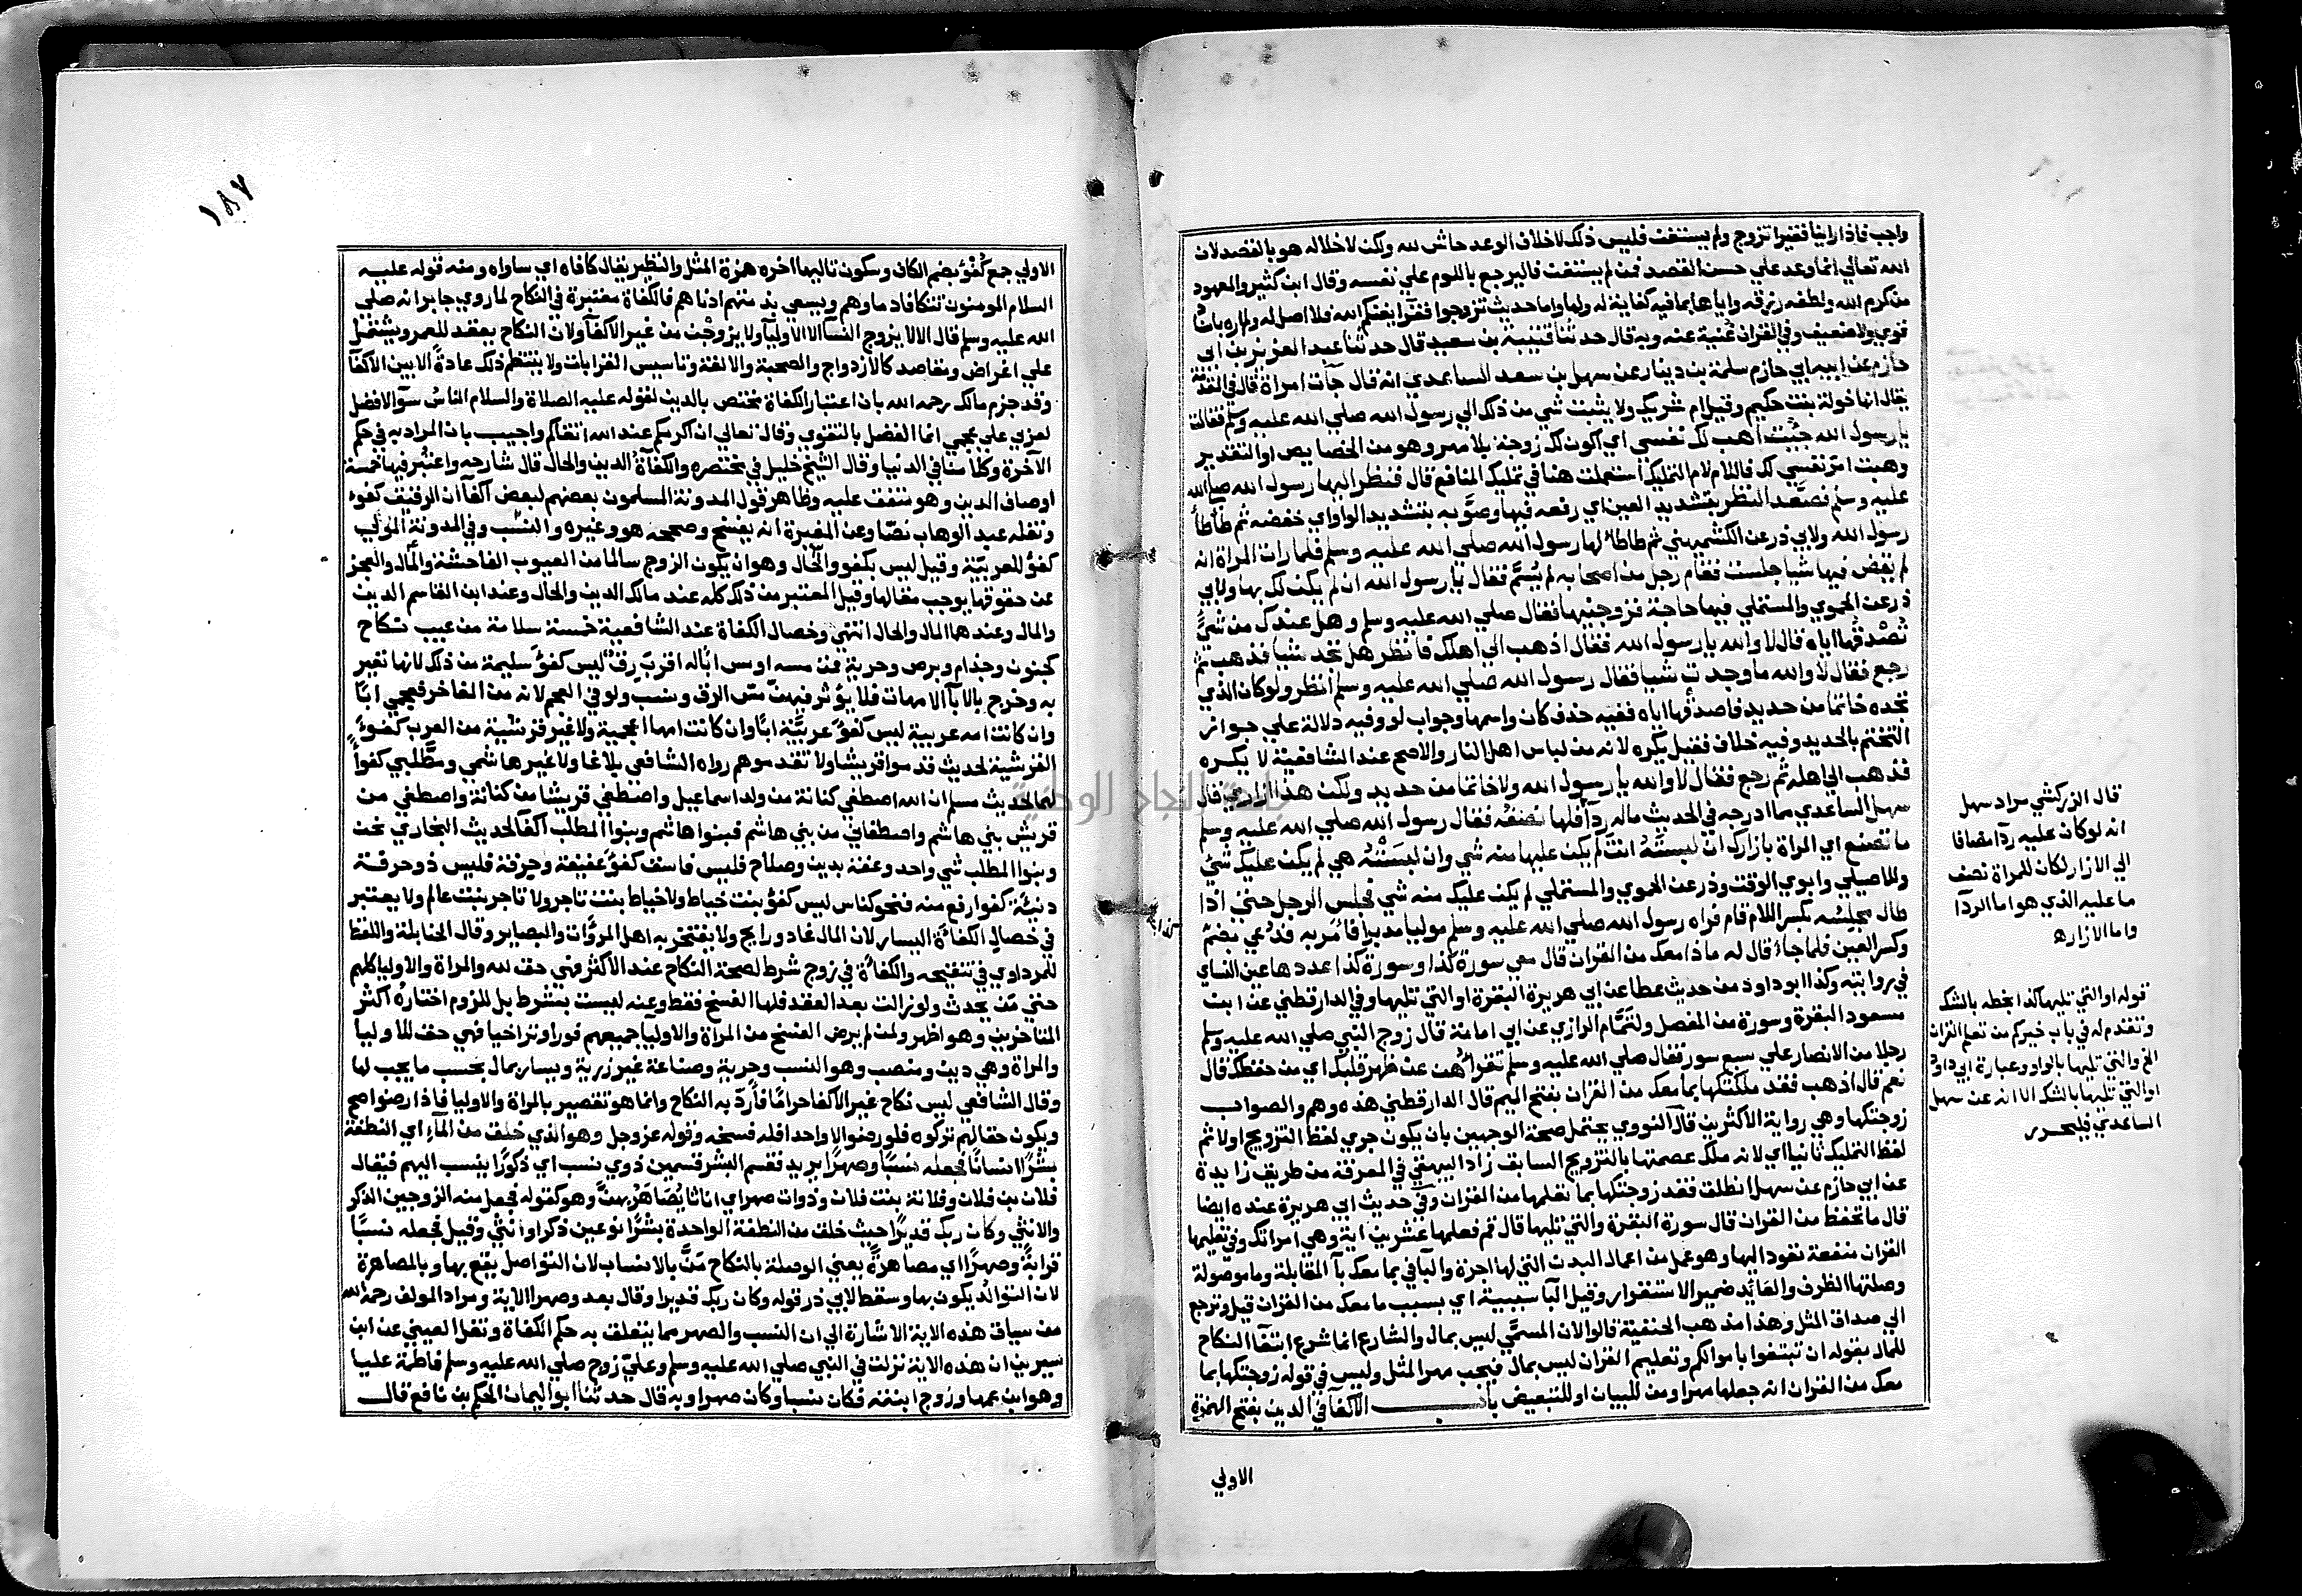 واجب فاذا راينا فقيرا تزوج ولم يستغن فليس ذلك لاخلاف الوعد حاش لله ولكن لاخلاله هو بالقصد لان
الله تعالي انما وعد علي حسن القصد فمن لم يستغن فاليرجع باللوم علي نفسه وقال ابن كثير والمعهود
من كرم الله ولطفه رزقه واياها بما فيه كفاية له ولها واما حديث تزوجوا فقرا يغنكم الله فلا اصل له ولم اره باسناد
قوي ولا ضعيف وفي القران غنية عنه وبه قال حدثنا قتيبة بن سعيد قال حدثنا عبد العزيز بن ابي
حازم عن ابيه ابي حازم سلمة بن دينار عن سهل بن سعد الساعدي انه قال جآت امراة قال في المقدمة
يقال انها خولة بنت حكيم وقيل ام شريك ولا يثبت شي من ذلك الي رسول الله صلي الله عليه وسلم فقالت
يا رسول الله جئت اهب لك نفسي اي اكون لك زوجة بلا مهر وهو من الخصايص او التقدير
وهبت امر نفسي لك فاللام لام التمليك استعملت هنا في تمليك المنافع قال فنظر اليها رسول الله صلي الله
عليه وسلم فصعَّد النظر بتشديد العين اي رفعه فيها وصوَّبه بتشديد الواو اي خفضه ثم طأطأ
رسول الله ولابي ذر عن الكشميهني ثم طاطأ لها رسول الله صلي الله عليه وسلم فلما رات المراة انه
لم يقض فيها شيا جلست فقام رجل من اصحابه لم يُسَمَّ فقال يا رسول الله ان لم يكن لك بها ولابي
ذر عن الحموي والمستملي فيها حاجة فزوجنيها فقال صلي الله عليه وسلم وهل عندك من شيٍ
تُصْدقُها اياه قال لا والله يا رسول الله فقال اذهب الي اهلك فانظر هل تجد شيا فذهب ثم
رجع فقال لا والله ما وجدت شيا فقال رسول الله صلي الله عليه وسلم انظر ولو كان الذي
تجده خاتما من حديد فاصدقها اياه ففيه حذف كان واسمها وجواب لو وفيه دلالة علي جواز
التختم بالحديد وفيه خلاف فقيل يكره لانه من لباس اهل النار والاصح عند الشافعية لا يكره
فذهب الي اهله ثم رجع فقال لا والله يا رسول الله ولا خاتما من حديد ولكن هذا ازاري قال
سهل الساعدي مما ادرجه في الحديث ماله ردآ فلها نصفه فقال رسول الله صلي الله عليه وسلم
ما تصنع اي المراة بازارك ان لبستَهُ انت لم يكن عليها منه شي وان لبسَتْهُ هي لم يكن عليك شيٌ
وللاصيلي وابوي الوقت وذر عن الحموي والمستملي لم يكن عليك منه شي فجلس الرجل حتي اذا
طال مجلِسُه بكسر اللام قام فراه رسول الله صلي الله عليه وسلم موليا مدبرا فامر به فدُعي بضم
وكسر العين فلما جاء قال له ماذا معك من القران قال معي سورة كذا وسورة كذا عددها عين النساي
في روايته وكذا ابو داود من حديث عطا عن ابي هريرة البقرة او التي تليها وفي الدارقطني عن ابن
مسعود البقرة وسورة من المفصل ولتَمَّام الرازي عن ابي امامة قال زوج النبي صلي الله عليه وسلم
رجلا من الانصار علي سبع سور فقال صلي الله عليه وسلم تقرأهن عن ظهر قلبك اي من حفظك قال
نعم قال اذهب فقد ملكتكها بما معك من القران بفتح الميم قال الدارقطني هذه وهم والصواب
زوجتكها وهي رواية الاكثرين قال النووي يحتمل صحة الوجهين بان يكون جري لفظ التزويج اولا ثم
لفظ التمليك ثانيا اي لانه ملك عصمتها بالتزويج السابق زاد البيهقي في المعرفة من طريق زايدة
عن ابي حازم عن سهل انطلق فقد زوجتكها بما تعلمها من القران وفي حديث ابي هريرة عنده ايضا
قال ما تحفظ من القران قال سورة البقرة والتي تليها قال قم فعلمها عشرين اية وهي امراتك وفي تعليمها
القران منفعة تعود اليها وهو عمل من اعمال البدن التي لها اجرة والبآ في بما معك بآ المقابلة وما موصولة
وصلتها الظرف والعايد ضمير الاستقرار وقيل البآ سببية اي بسبب ما معك من القران قيل وترجع
الي صداق المثل وهذا مذهب الحنفية قالوا لان المسمَّي ليس بمال والشارع انما شرع ابتغآ النكاح
للمال بقوله ان تبتغوا باموالكم وتعليم القران ليس بمال فيجب مهر المثل وليس في قوله زوجتكها بما
معك من القران انه جعلها مهرا ومن للبيان او للتبعيض باب الاكفآ في الدين بفتح الهمزة
الاولي
قال الزركشي مراد سهل
انه لو كان عليه ردآ مضافا
الي الازار لكان للمراة نصف
ما عليه الذي هو اما الردآ
واما الازار ه
قوله او التي تليها كذا بخطه بالشك
وتقدم له في باب خيركم من تعلم القران
الخ والتي تليها بالواو وعبارة ابي داود
او التي تليها بالشك الا انه عن سهل
الساعدي فليحرر
١٨٧
الاولي جمع كُفْؤ بضم الكاف وسكون تاليها اخره همزة المثل والنظير يقال كافاه اي ساواه ومنه قوله عليه
السلام المومنون تتكافا دماوهم ويسعي بذمتهم ادناهم فالكفاة معتبرة في النكاح لما روي جابر انه صلي
الله عليه وسلم قال الا لا يزوج النسآ الا الاوليآ ولا يزوجن من غير الاكفآ ولان النكاح يعقد للعمر ويشتمل
علي اغراض ومقاصد كالازدواج والصحبة والالفة وتاسيس القرابات ولا ينتظم ذلك عادةً الا بين الاكفآ
وقد جزم مالك رحمه الله بان اعتبار الكفاة مختص بالدين لقوله عليه الصلاة والسلام الناس سوآ لا فضل
لعربي علي عجمي انما الفضل بالتقوي وقال تعالي ان اكرمكم عند الله اتقاكم واجيب بان المراد به في حكم
الاخرة وكلامنا في الدنيا وقال الشيخ خليل في مختصره والكفآة الدين والحال قال شارحه واعتُبر فيها خمسة
اوصاف الدين وهو متفق عليه وظاهر قول المدونة المسلمون بعضهم لبعض اكفآ ان الرقيق كفوه
ونقله عبد الوهاب نصّا وعن المغيرة انه يفسخ وصححه هو وغيره والنسب وفي المدونة المولي
كفؤ للعربيّة وقيل ليس بكفو والحال وهو ان يكون الزوج سالما من العيوب الفاحشة والمال والعجز
عن حقوقها يوجب مقالها وقيل المعتبر من ذلك كله عند مالك الدين والحال وعند ابن القاسم الدين
والمال وعندهما المال والحال انتهي وخصال الكفاة عند الشافعية خمسة سلامة من عيب نكاح
كجنون وجذام وبرص وحرية فمن مسه او مس ابًا له اقرب رقٌ ليس كفؤ سليمة من ذلك لانها تعير
به وخرج بالابآ الامهات فلا يؤثر فيهن مسّ الرق ونسب ولو في العجم لانه من المفاخر فعجمي ابًا
وان كانت امه عربية ليس كفؤ عربيَّة ابًا وان كانت امها اعجمية ولا غير قرشية من العرب كفوءً
القرشية لحديث قدموا قريشا ولا تقدموهم رواه الشافعي بلاغا ولا غير هاشمي ومطَّلبي كفواً
لهما لحديث مسلم ان الله اصطفي كنانة من ولد اسماعيل واصطفي قريشا من كنانة واصطفي من
قريش بني هاشم واصطفاني من بني هاشم فبنوا هاشم وبنوا المطلب اكفآ لحديث البخاري نحن
وبنوا المطلب شي واحد وعفة بدين وصلاح فليس فاسق كفؤ عفيفة وحرفة فليس ذو حرفة
دنيئة كفوا رفع منه فنحو كناس ليس كفؤ بنت خياط ولا خياط بنت تاجر ولا تاجر بنت عالم ولا يعتبر
في خصال الكفاة اليسار لان المال غاد ورايح ولا يفتخر به اهل المروّات والبصاير وقال الحنابلة واللفظ
للمرداوي في تنقيحه والكفاة في زوج شرط لصحة النكاح عند الاكثر فهي حق لله والمراة والاوليا كلهم
حتي من يحدث ولو زالت بعد العقد فلها الفسخ فقط وعنه ليست بشرط بل للزوم اختاره اكثر
المتاخرين وهو اظهر ولمن لم يرض الفسخ من المراة والاوليآ جميعهم فورا وتراخيا فهي حق للاوليا
والمراة وهي دين ومنصب وهو النسب وحرية وصناعة غير زرية ويسار بمال بحسب ما يجب لها
وقال الشافعي ليس نكاح غير الاكفا حراما فأردّ به النكاح وانما هو تقصير بالمراة والاوليا فاذا رضوا صح
ويكون حقا لهم تركوه فلو رضوا الا واحدا فله فسخه وقوله عز وجل وهو الذي خلق من المآء اي النطفة
بشرًا انسانًا فجعله نسبًا وصهرًا يريد فقسم البشر قسمين ذوي نسب اي ذكورًا ينسب اليهم فيقال
فلان بن فلان وفلانة بنت فلان وذوات صهر اي اناثا يُصَاهَرُ بهن وهو كقوله فجعل منه الزوجين الذكر
والانثي وكان ربك قديرًا حيث خلق من النطفة الواحدة بشرًا نوعين ذكرا وانثي وقيل فجعله نسبًا
قرابةً وصهرًا اي مصاهرةً يعني الوصلة بالنكاح مَنَّ بالانساب لان التواصل يقع بها وبالمصاهرة
لان التوالُد يكون بها وسقط لابي ذر قوله وكان ربك قديرا وقال بعد وصهرا الاية ومراد المولف رحمه الله
من سياق هذه الاية الاشارة الي ان النسب والصهر مما يتعلق به حكم الكفاة ونقل العيني عن ابن
سيرين ان هذه الاية نزلت في النبي صلي الله عليه وسلم وعليّ زوج صلي الله عليه وسلم فاطمة عليا
وهو ابن عمها وزوج ابنته فكان نسبا وكان صهرا وبه قال حدثنا ابو اليمان الحكم بن نافع قال